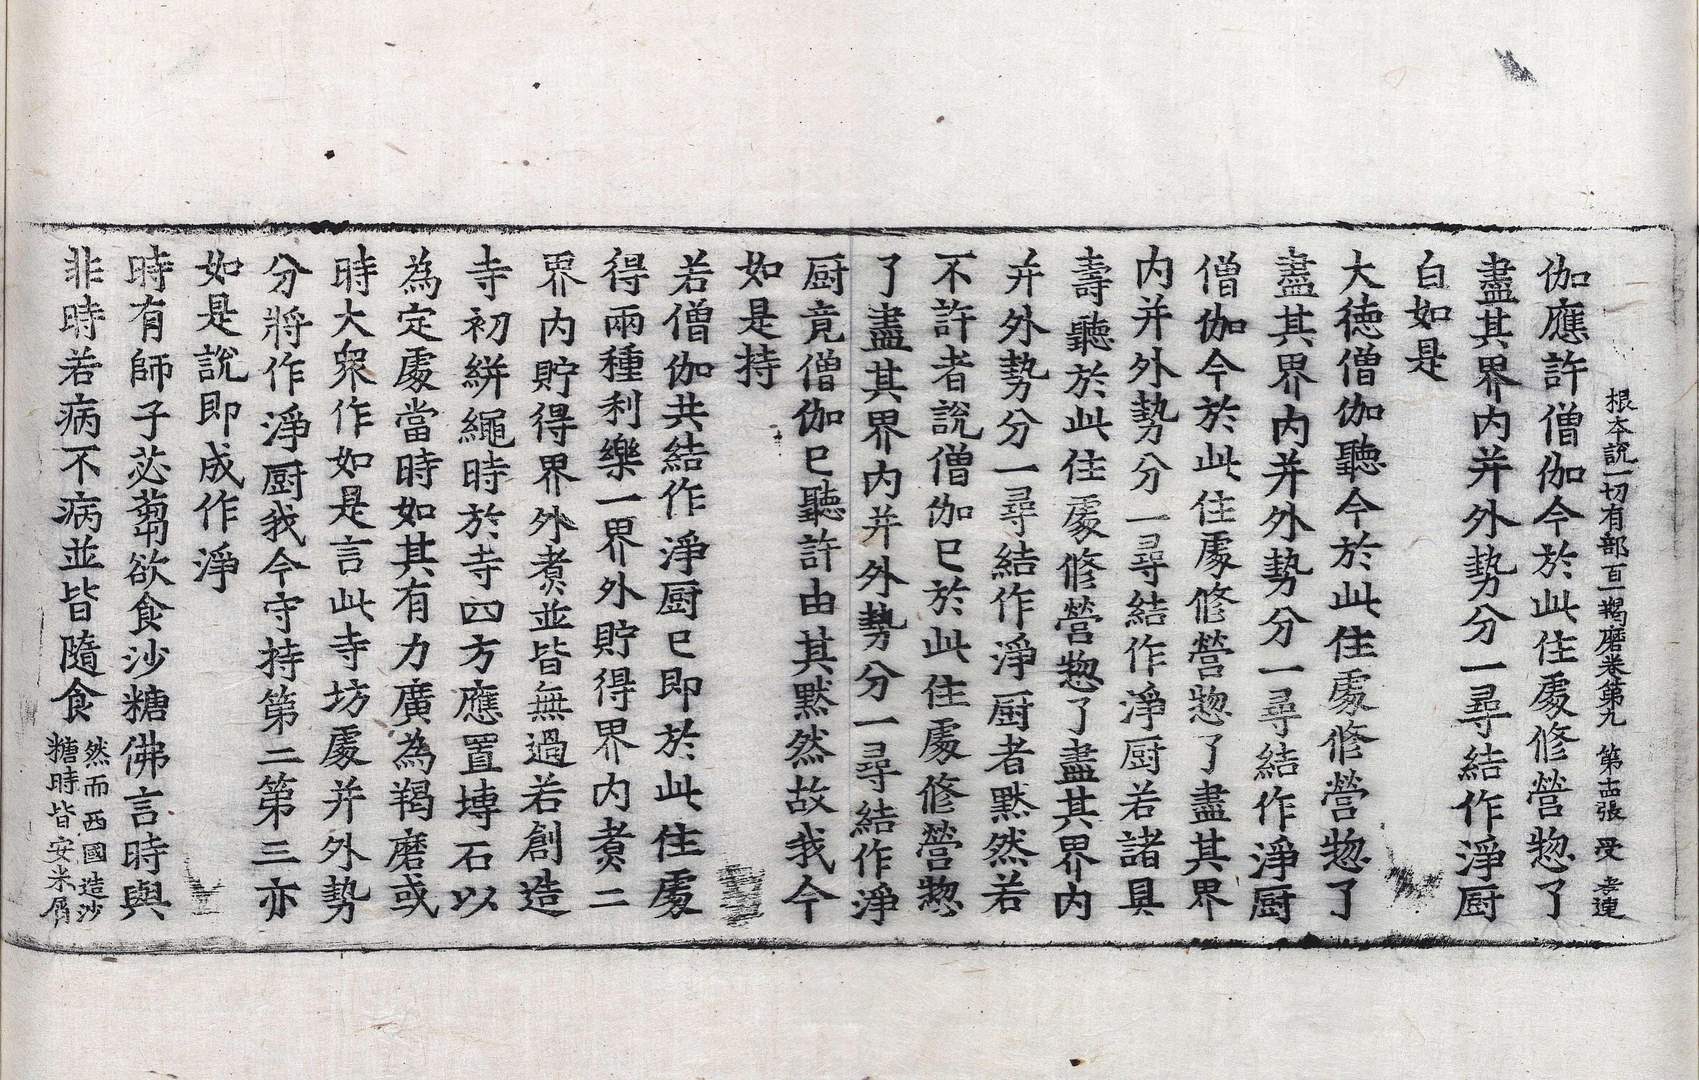 根本說一切有部百一羯磨卷第九　第十五張　受　孝連
伽應許僧伽今於此住處修營惣了
盡其界内并外勢分一尋結作淨厨
白如是
大德僧伽聽今於此住處修營惣了
盡其界内并外勢分一尋結作淨厨
僧伽今於此住處修營惣了盡其界
内并外勢分一尋結作淨厨若諸具
壽聽於此住處修營惣了盡其界内
并外勢分一尋結作淨厨者黙然若
不許者說僧伽已於此住處修營惣
了盡其界内并外勢分一尋結作淨
厨竟僧伽已聽許由其黙然故我今
如是持
若僧伽共結作淨厨已即於此住處
得兩種利樂一界外貯得界内煑二
界内貯得界外煑並皆無過若創造
寺初絣繩時於寺四方應置塼石以
為定處當時如其有力廣為羯磨或
時大衆作如是言此寺坊處并外勢
分將作淨厨我今守持第二第三亦
如是說即成作淨
時有師子苾蒭欲食沙糖佛言時與
非時若病不病並皆隨食然而西國造沙
糖時皆安米屑